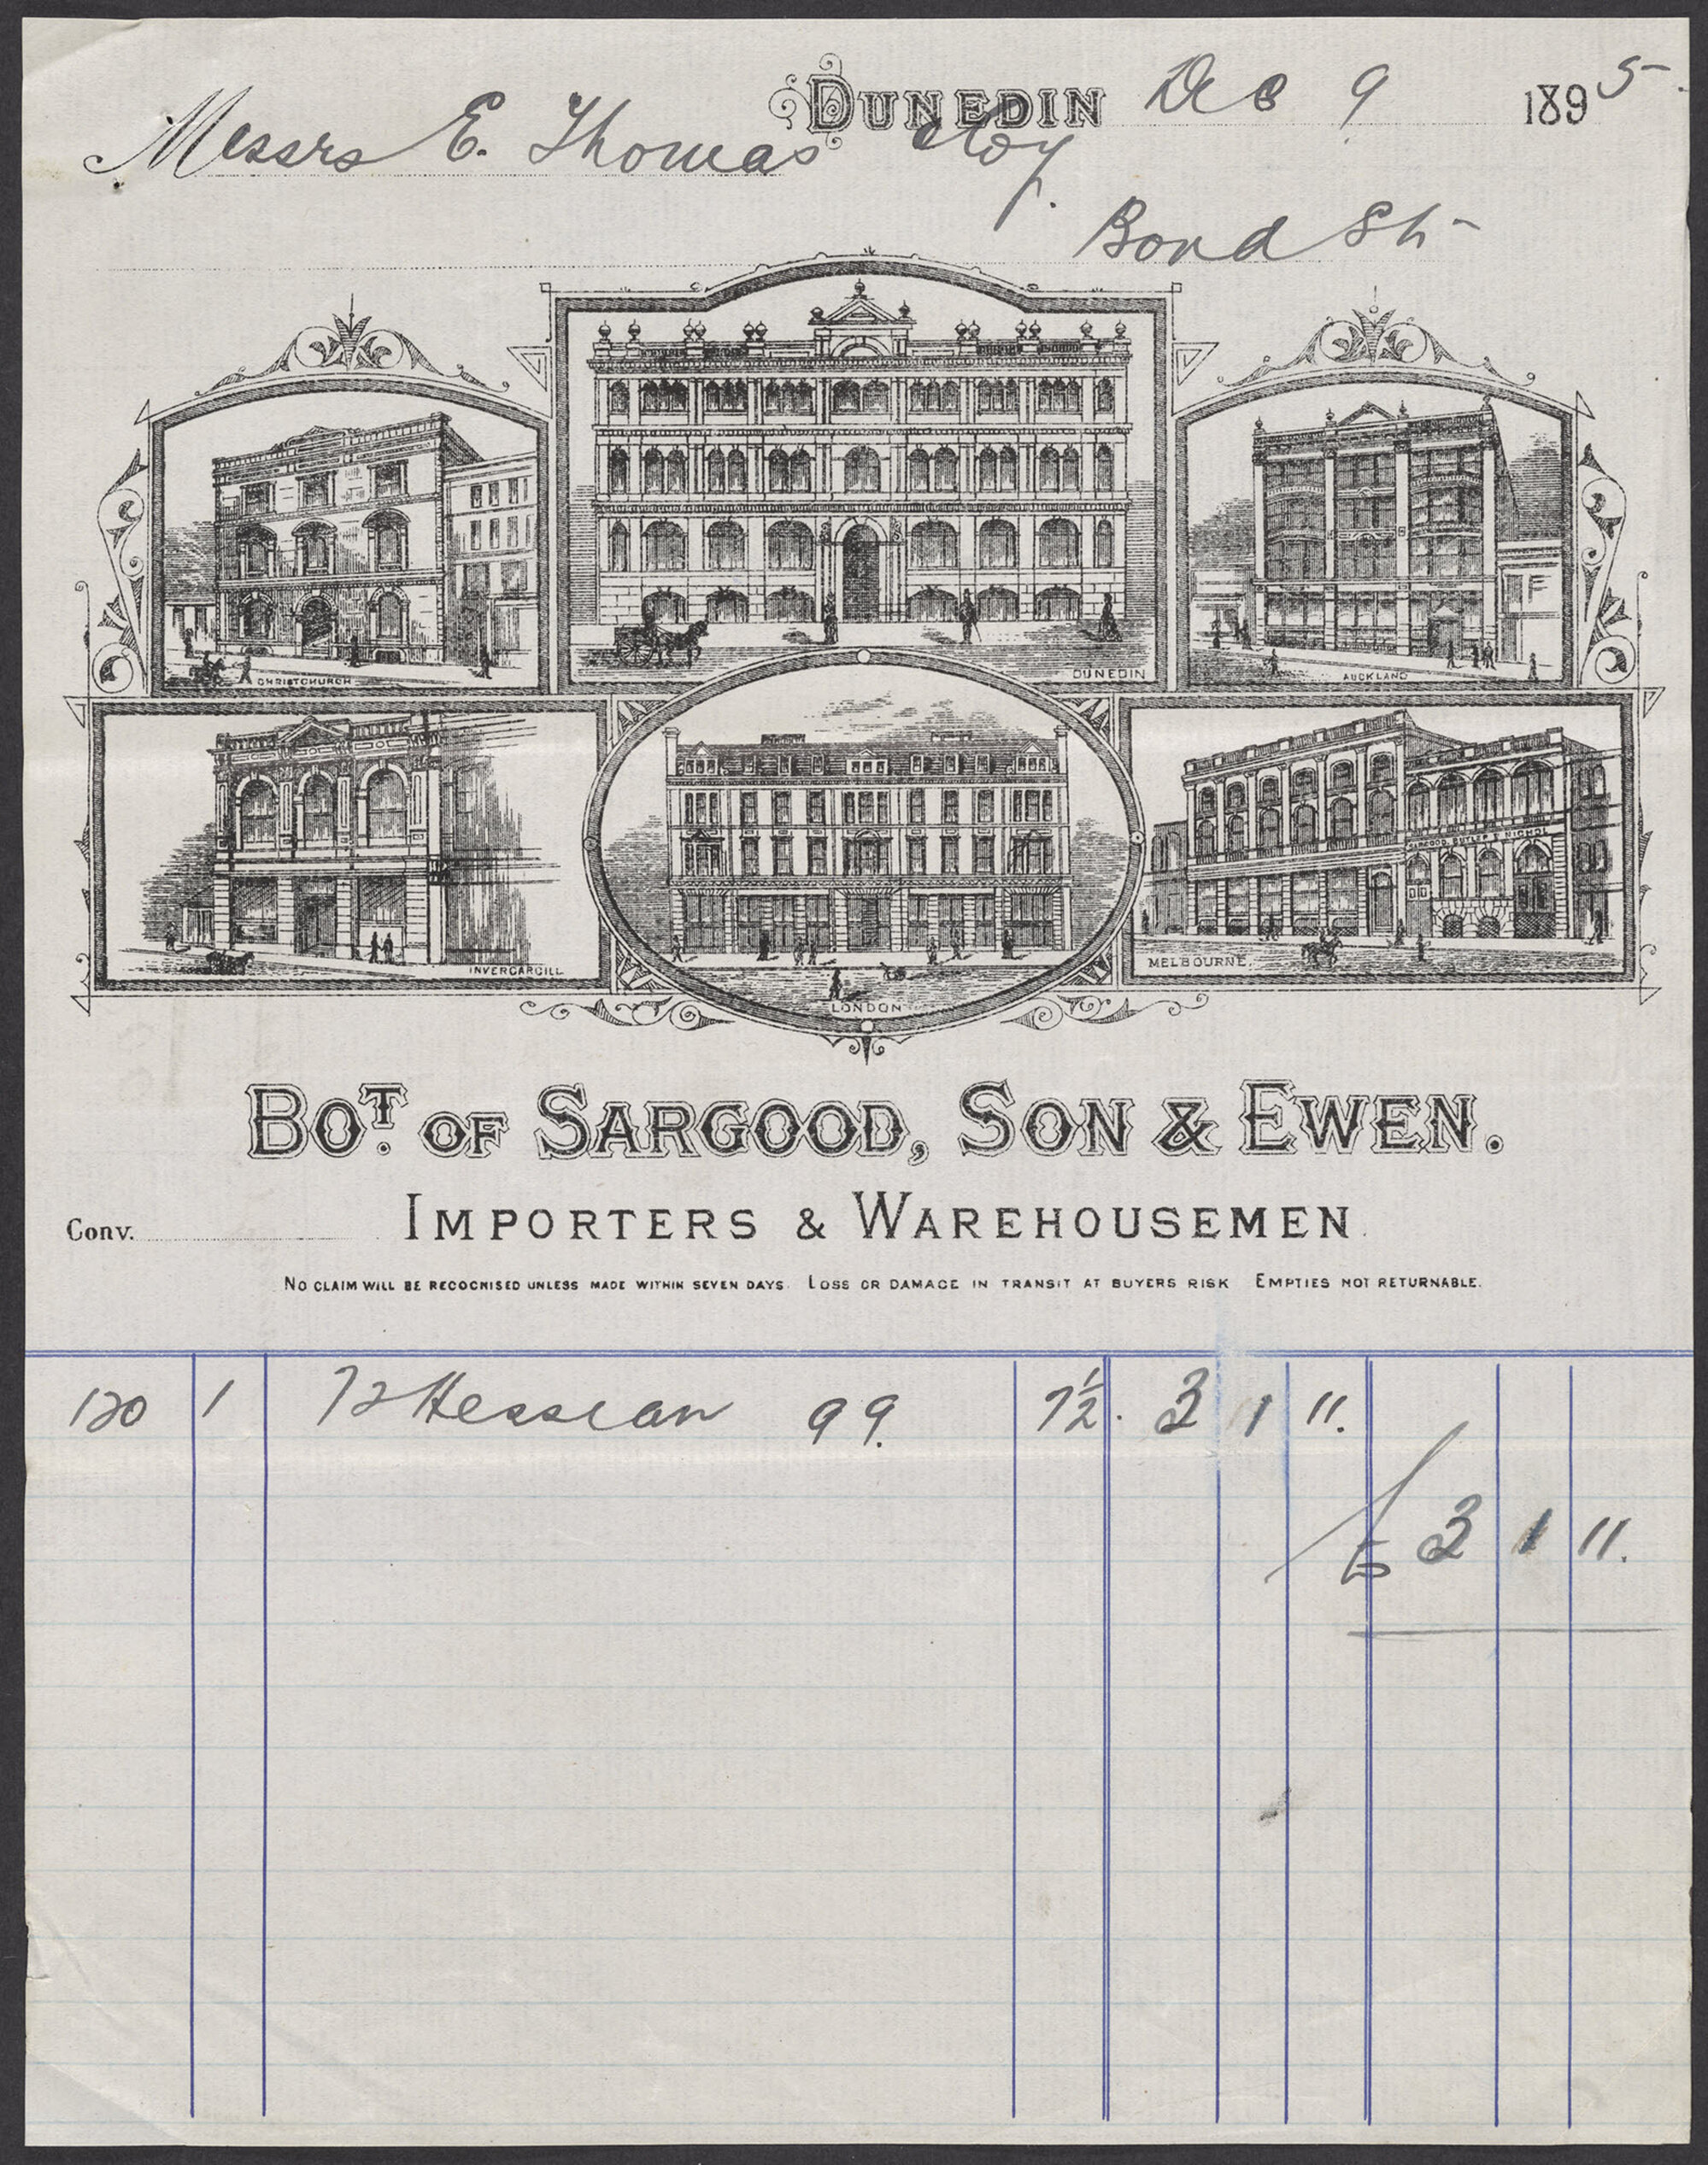 DUNEDIN Dec 9 1895
Messrs E. Thomas & Coy.
Bond St
CHRISTCHURCH
DUNEDIN
AUCKLAND
INVERCARGILL
LONDON
SARGOOD, BUTLER & NICHOL
MELBOURNE.
BOT. OF SARGOOD, SON & EWEN.
Conv. IMPORTERS & WAREHOUSEMEN.
NO CLAIM WILL BE RECOGNISED UNLESS MADE WITHIN SEVEN DAYS. LOSS OR DAMAGE IN TRANSIT AT BUYERS RISK EMPTIES NOT RETURNABLE.
120 1 72 Hessian 99. 7½. 3 1 11.
£ 3 1 11.